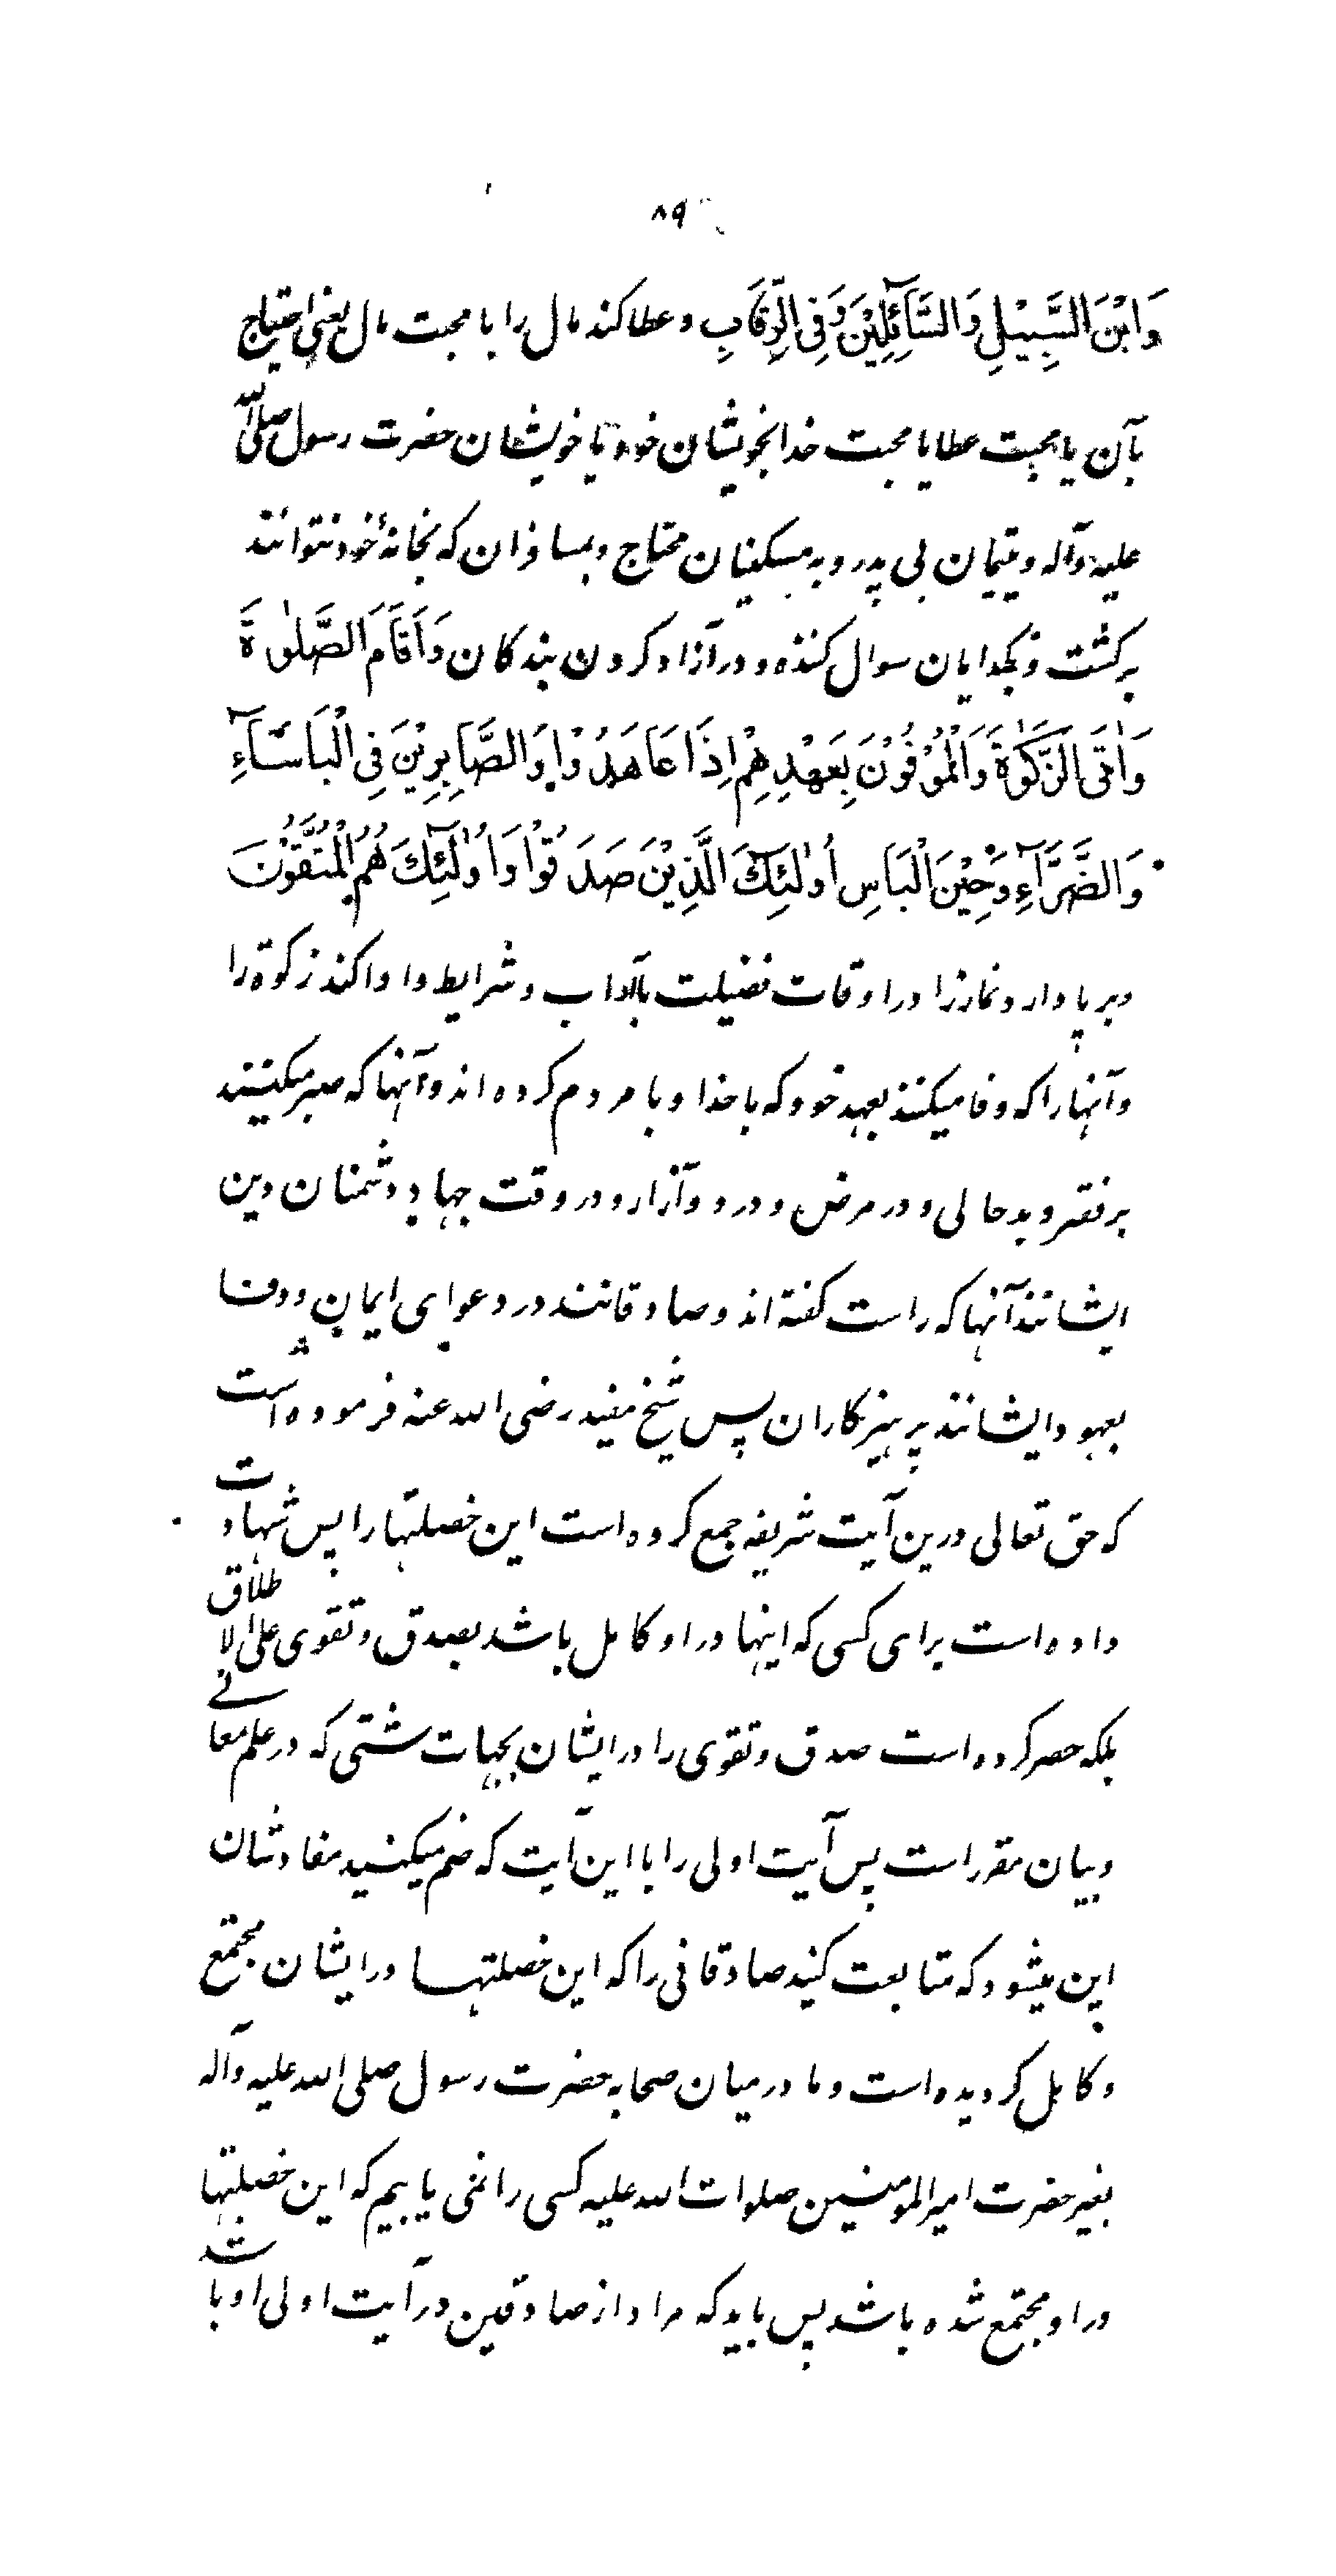 ۸۹
وَابْنَ السَّبِيْلِ وَالسَّآئِلِيْنَ وَفِي الرِّقَابِ و عطا کند مال را با محبت مال یعنی احتیاج
بآن یا محبت عطا یا محبت خدا بخویشان خود یا خویشان حضرت رسول صلی الله
علیه وآله و یتیمان بی پدر و به مسکینان محتاج و بمسافران که بخانهٔ خود نتوانند
برکشت و بکدایان سوال کننده و در آزاد کردن بندکان وَاَقَامَ الصَّلٰوةَ
وَاٰتَى الزَّكٰوةَ وَالْمُوْفُوْنَ بِعَهْدِهِمْ اِذَا عَاهَدُوْا وَالصَّابِرِيْنَ فِي الْبَاسَآءِ
وَالضَّرَّآءِ وَحِيْنَ الْبَاسِ اُولٰٓئِكَ الَّذِيْنَ صَدَقُوْا وَاُولٰٓئِكَ هُمُ الْمُتَّقُوْنَ
و بر پا دارد نماز را در اوقات فضیلت باآداب و شرایط و ادا کند زکوة را
و آنها را که وفا میکنند بعهد خود که با خدا و با مردم کرده اند و آنها که صبر میکنند
بر فقر و بدحالی و در مرض و درد و آزار و در وقت جهاد دشمنان دین
ایشانند آنها که راست کفته اند و صادقانند در دعوای ایمان و وفا
بعهود و ایشانند پرهیزکاران پس شیخ مفید رضی الله عنه فرموده است
که حق تعالی درین آیت شریفه جمع کرده است این خصلتها را پس شهادت
داده است برای کسی که اینها در او کامل باشد بصدق و تقوی علی الاطلاق
بلکه حصر کرده است صدق و تقوی را در ایشان بجهات شتی که در علم معانی
و بیان مقرر است پس آیت اولی را با این آیت که ضم میکنید مفادشان
این میشود که متابعت کنید صادقانی را که این خصلتها در ایشان مجتمع
و کامل کردیده است و ما در میان صحابه حضرت رسول صلی الله علیه وآله
بغیر حضرت امیرالمومنین صلوات الله علیه کسی را نمی یابیم که این خصلتها
در او مجتمع شده باشد پس باید که مراد از صادقین در آیت اولی او باشد